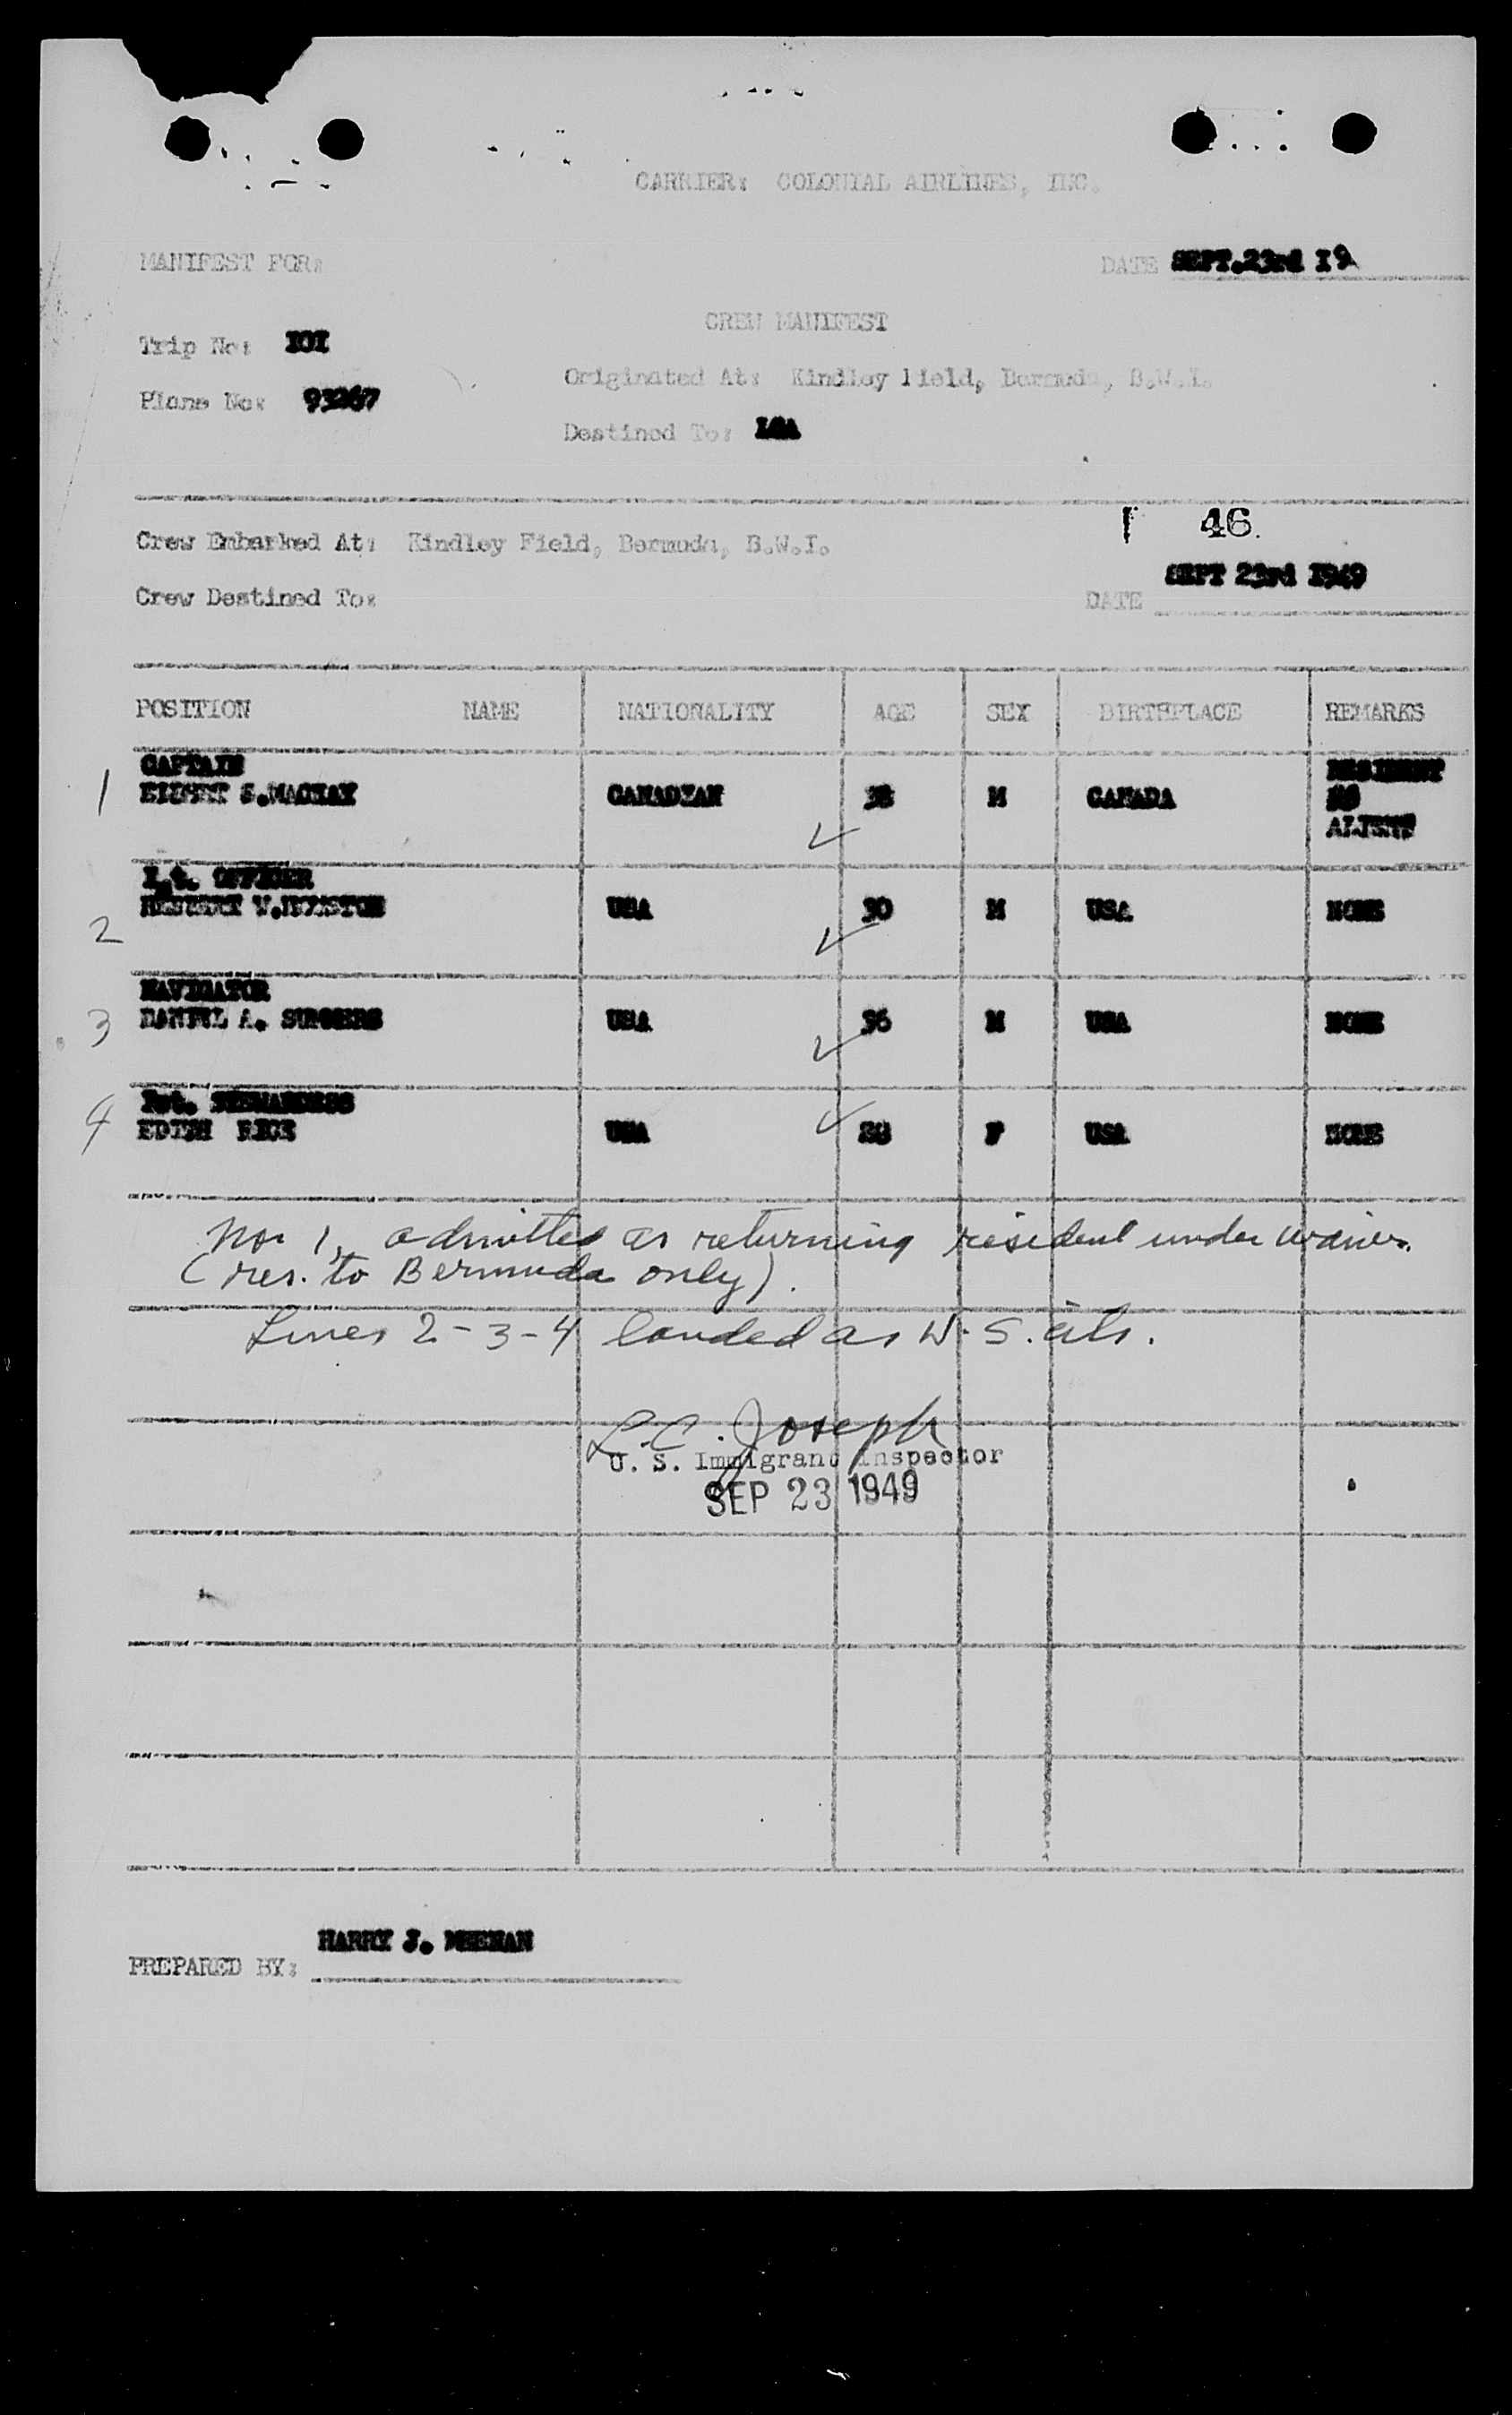 CARRIER: COLONIAL AIRLINES, INC.
MANIFEST FOR:
DATE SEPT.23rd I9
CREW MANIFEST
Trip No: IOI
Originated At: Kindley Field, Bermuda, B.W.I.
Plane No: 93267
Destined To: LGA
46
Crew Embarked At: Kindley Field, Bermuda, B.W.I.
SEPT 23rd I949
Crew Destined To:
DATE
POSITION NAME NATIONALITY AGE SEX BIRTHPLACE REMARKS
CAPTAIN RESIDENT
1 S.MACKAY CANADIAN 38 M CANADA
OFFICER
2 USA 30 M USA NONE
NAVIGATOR
3 DANIEL A. USA 36 M USA NONE
4 EDITH USA F USA NONE
No. 1, admitted as returning resident under waiver.
(res. to Bermuda only).
Lines 2-3-4 landed as U.S. cits.
L.C. Joseph
U. S. Immigrant Inspector
SEP 23 1949
HARRY J.
PREPARED BY: